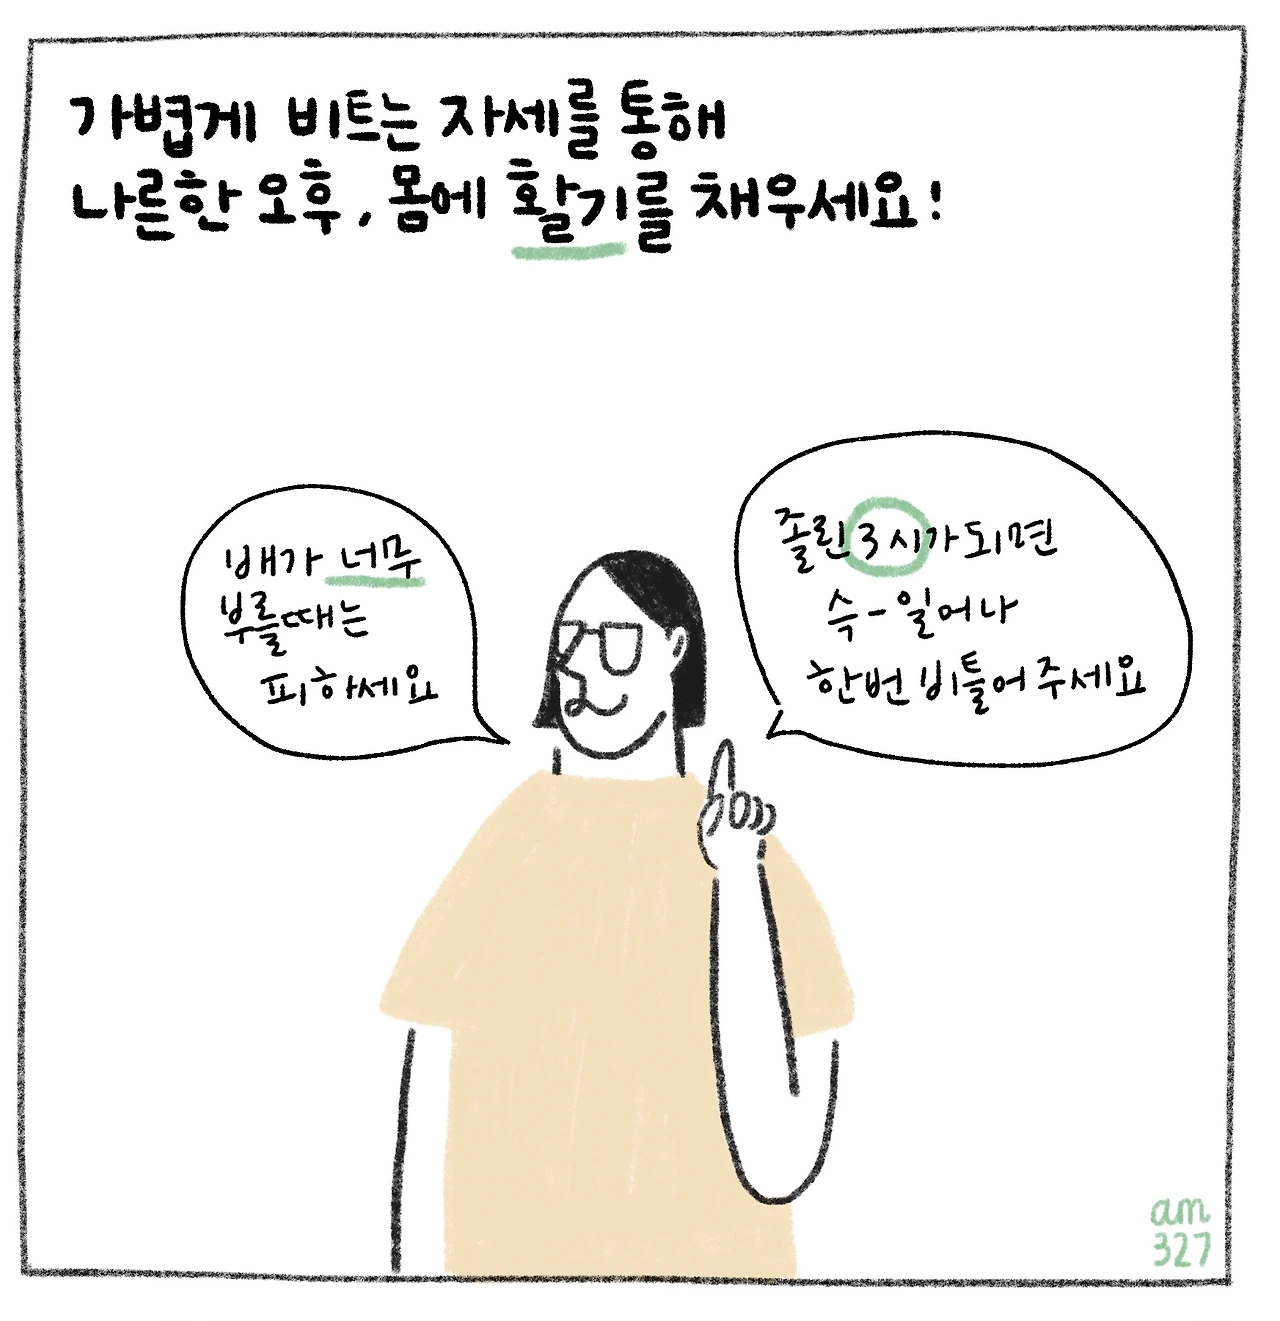 가볍게 비트는 자세를 통해
나른한 오후, 몸에 활기를 채우세요!
배가 너무
부를때는
피하세요
졸린 3시가 되면
슥-일어나
한번 비틀어 주세요
am
327